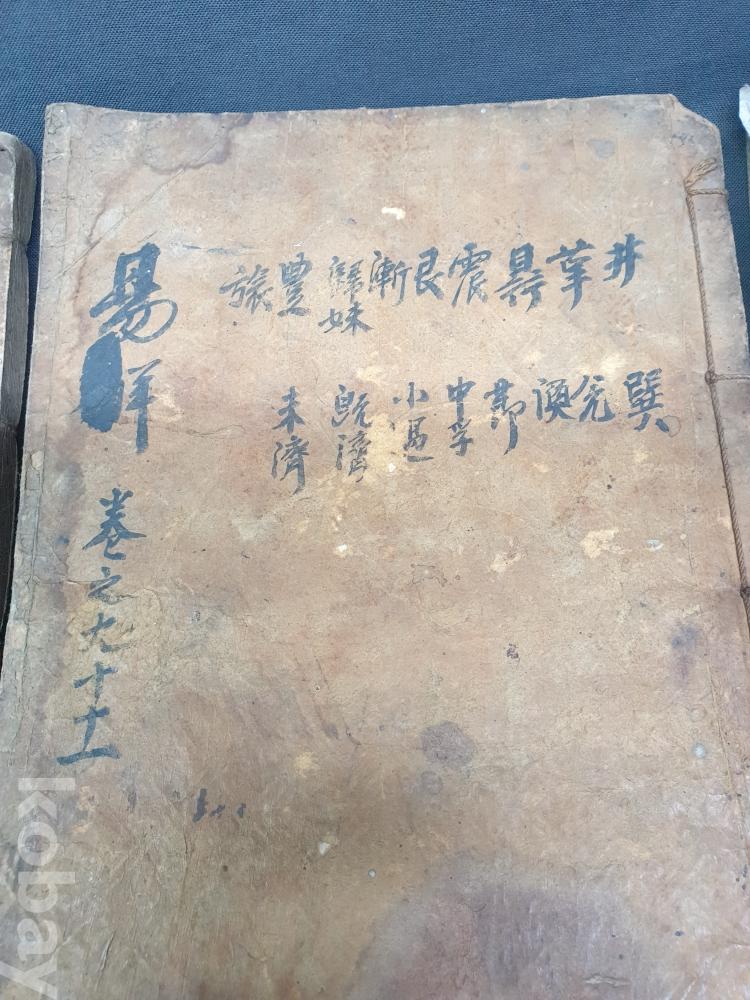 井 革 鼎 震 艮 漸 歸妹 豊 旅
巽 兊 渙 節 中孚 小過 旣濟 未濟
易
卷之九十十一
kobay